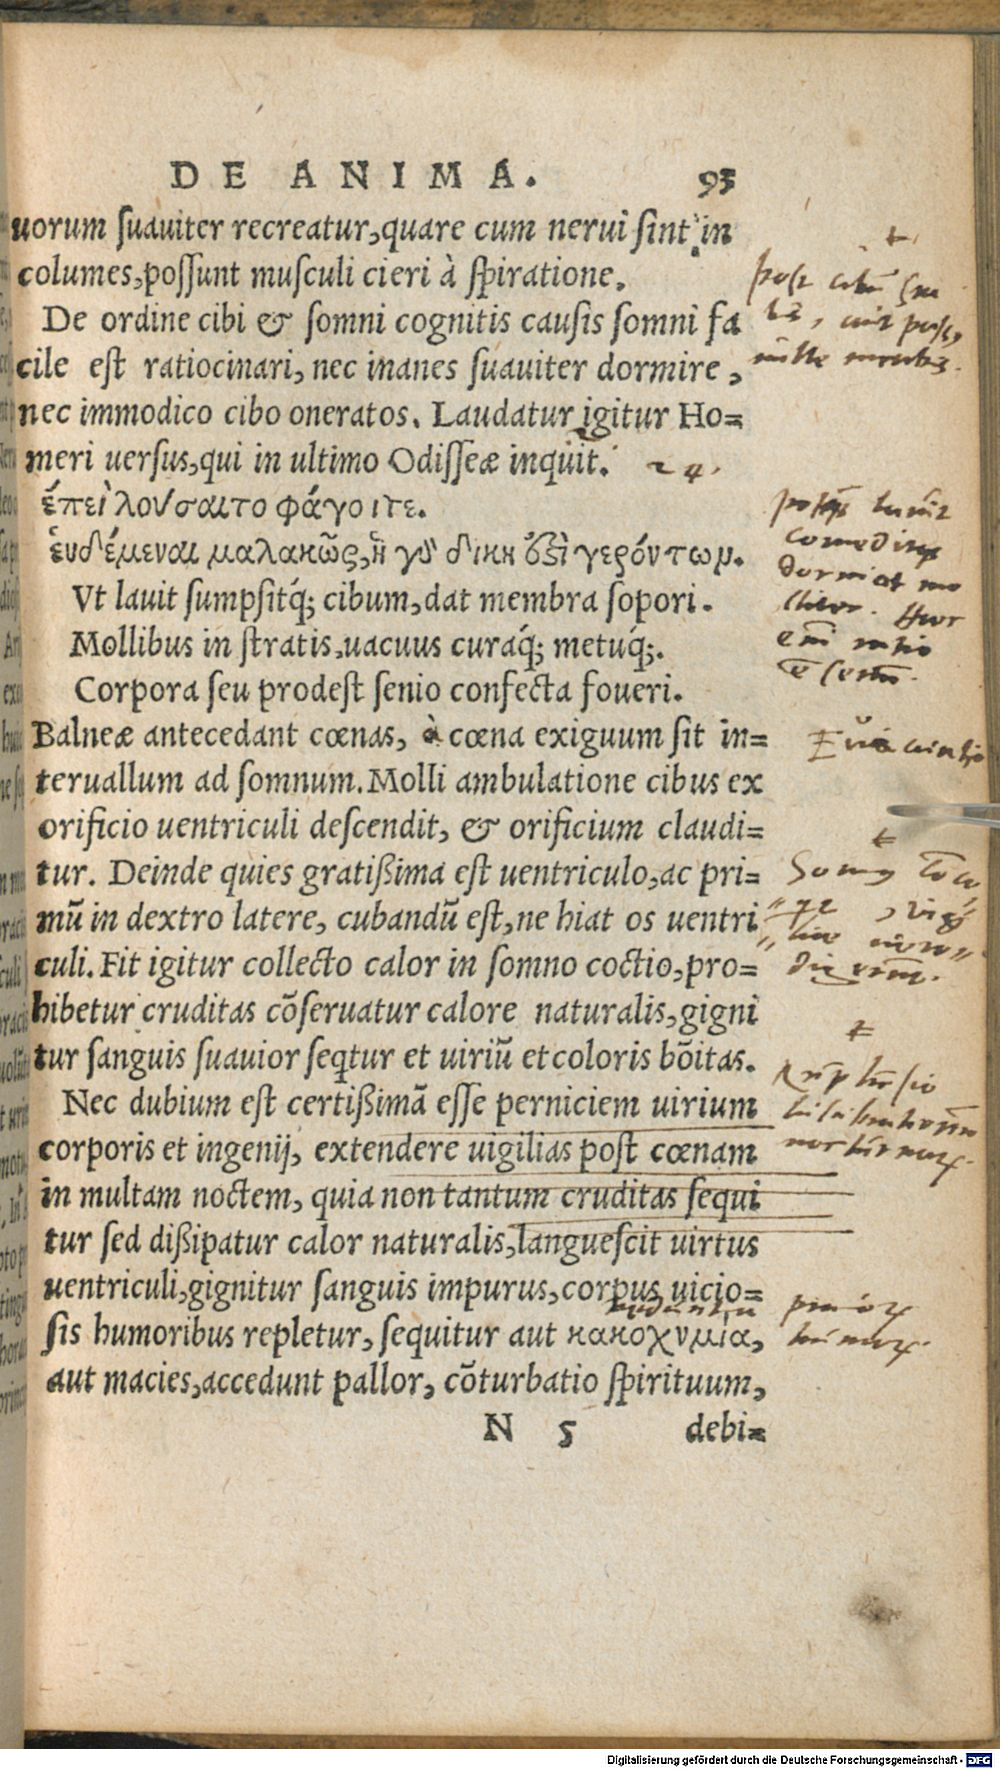 DE ANIMA. 95
uorum suauiter recreatur, quare cum nerui sint in
columes, possunt musculi cieri à spiratione.
De ordine cibi & somni cognitis causis somni fa
cile est ratiocinari, nec inanes suauiter dormire,
nec immodico cibo oneratos. Laudatur igitur Ho=
meri uersus, qui in ultimo Odisseæ inquit. 24.
ἐπεὶ λούσαιτο φάγοι τε.
ἑυδέμεναι μαλακῶς, ἣ γὸ δίκη ὀξὶ γερόντωμ.
Vt lauit sumpsitq́; cibum, dat membra sopori.
Mollibus in stratis, uacuus curaq́; metuq́;.
Corpora seu prodest senio confecta foueri.
Balneæ antecedant cœnas, à cœna exiguum sit in=
teruallum ad somnum. Molli ambulatione cibus ex
orificio uentriculi descendit, & orificium claudi=
tur. Deinde quies gratißima est uentriculo, ac pri=
mũ in dextro latere, cubandũ est, ne hiat os uentri
culi. Fit igitur collecto calor in somno coctio, pro=
hibetur cruditas cõseruatur calore naturalis, gigni
tur sanguis suauior seqtur et uiriũ et coloris bõitas.
Nec dubium est certißimã esse perniciem uirium
corporis et ingenij, extendere uigilias post cœnam
in multam noctem, quia non tantum cruditas sequi
tur sed dißipatur calor naturalis, languescit uirtus
uentriculi, gignitur sanguis impurus, corpus uicio=
sis humoribus repletur, sequitur aut κακοχυμία,
aut macies, accedunt pallor, cõturbatio spirituum,
N 5 debi=
post
mille
dormiat
Digitalisierung gefördert durch die Deutsche Forschungsgemeinschaft - DFG